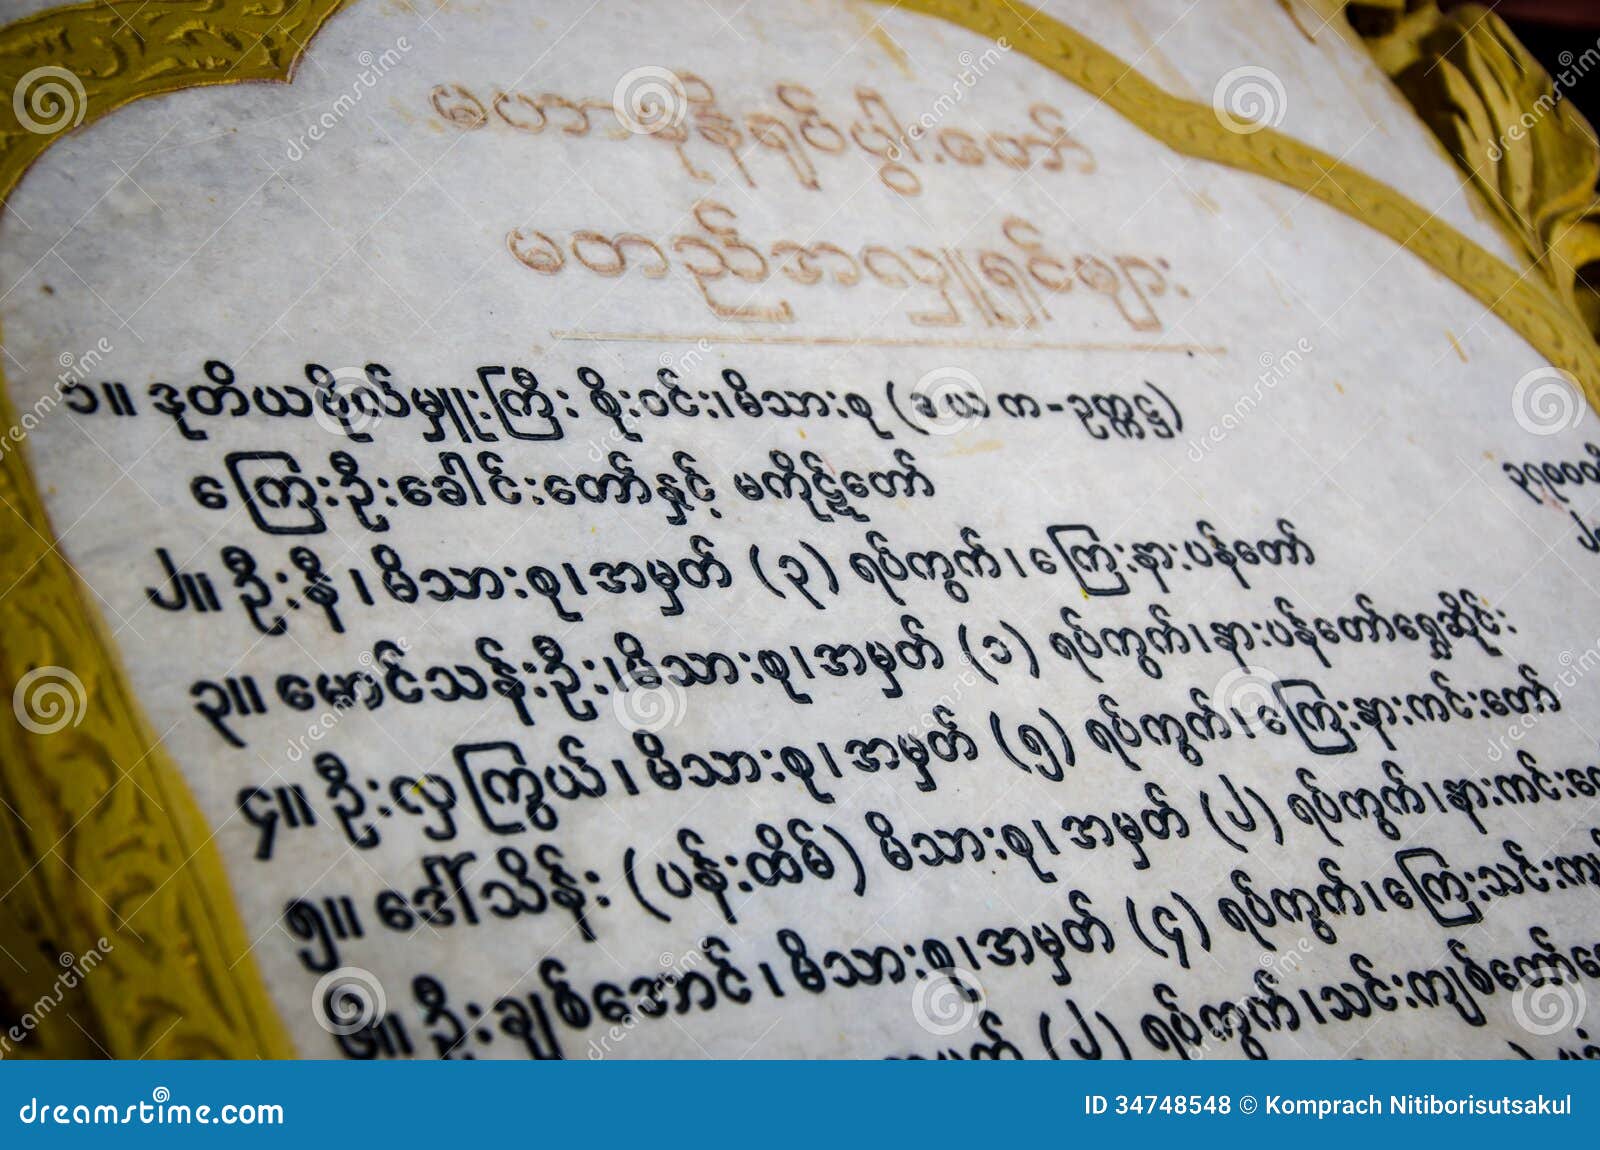 မဟာမုနိရုပ်ပွါးတော်
မတည်အလှူရှင်များ
၁။ ဒုတိယဗိုလ်မှူးကြီး စိုးဝင်း၊မိသားစု (ခယက-ဥက္ကဋ္ဌ)
ကြေးဦးခေါင်းတော်နှင့် မကိုဋ်တော်
၂။ ဦးနီ၊မိသားစု၊အမှတ် (၃) ရပ်ကွက်၊ကြေးနားပန်တော်
၃။ မောင်သန်းဦး၊မိသားစု၊အမှတ် (၁) ရပ်ကွက်၊နားပန်တော်ရွှေဆိုင်း
၄။ ဦးလှကြွယ်၊မိသားစု၊အမှတ် (၅) ရပ်ကွက်၊ကြေးနားကင်းတော်
၅။ ဒေါ်သိန်း (ပန်းထိမ်) မိသားစု၊အမှတ် (၂) ရပ်ကွက်၊နားကင်း
၆။ ဦးချစ်အောင်၊မိသားစု၊အမှတ် (၄) ရပ်ကွက်၊ကြေးသင်း
(၂) ရပ်ကွက်၊သင်းကျစ်တော်
dreamstime.com
ID 34748548 © Komprach Nitiborisutsakul